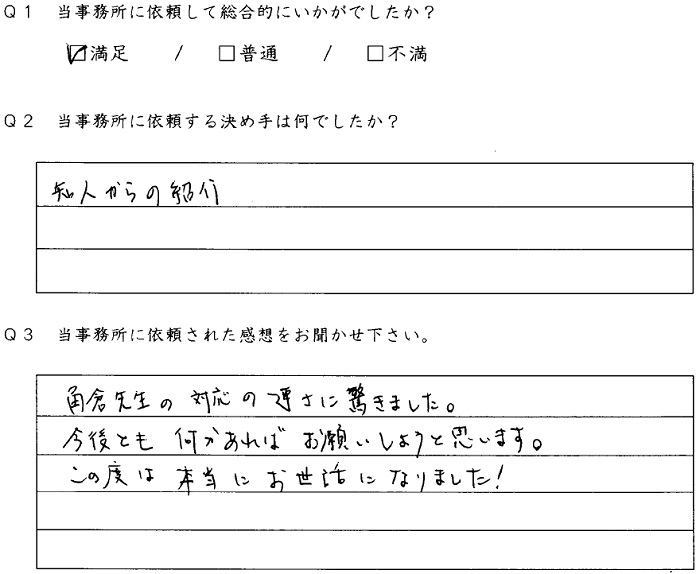 Q1 当事務所に依頼して総合的にいかがでしたか?
☑満足 / □普通 / □不満
Q2 当事務所に依頼する決め手は何でしたか?
知人からの紹介
Q3 当事務所に依頼された感想をお聞かせ下さい。
角倉先生の対応の速さに驚きました。
今後とも何かあればお願いしようと思います。
この度は本当にお世話になりました!